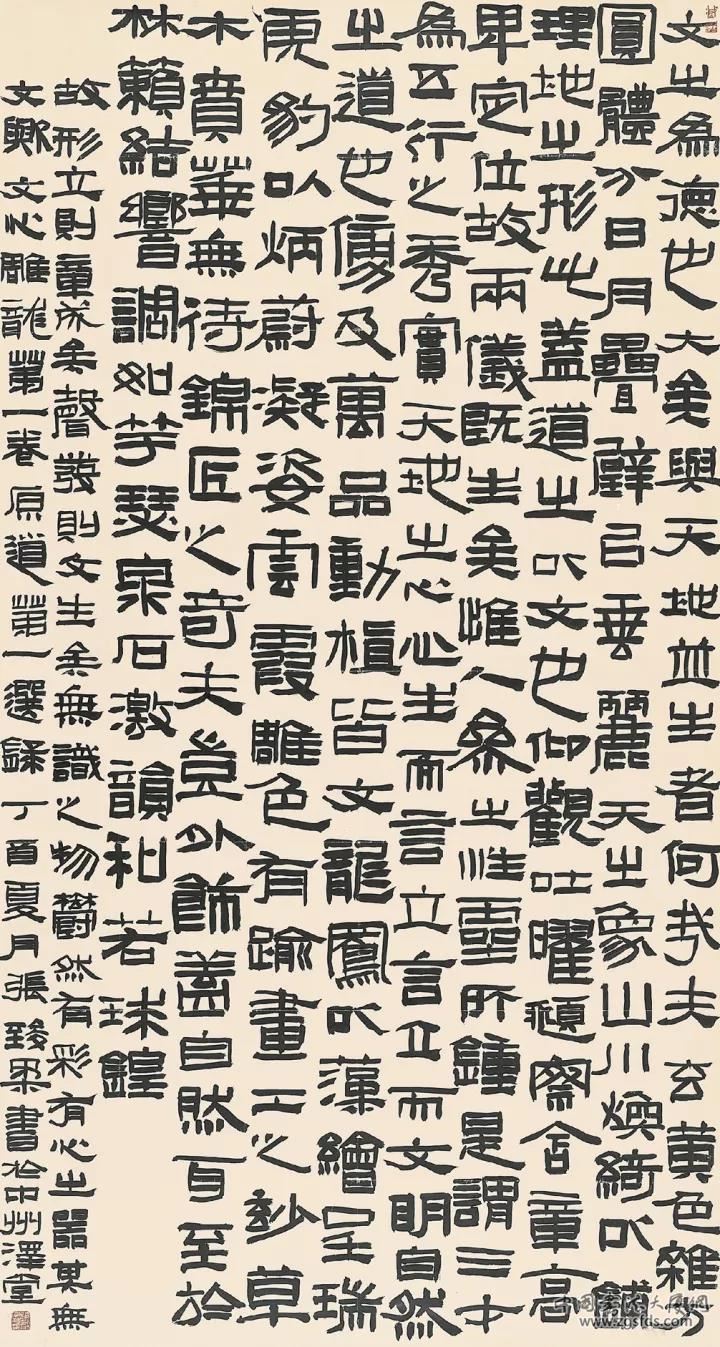 文之為德也大矣與天地並生者何哉夫玄黃色雜方
圓體分日月疊璧以垂麗天之象山川煥綺以鋪
理地之形此蓋道之以文也仰觀吐曜頫察含章高
卑定位故兩儀既生矣唯人參之性靈所鍾是謂三才
為五行之秀實天地之心心生而言立言立而文明自然
之道也傍及萬品動植皆文龍鳳以藻繪呈瑞
虎豹以炳蔚凝姿雲霞雕色有踰畫工之妙草
木賁華無待錦匠之奇夫豈外飾蓋自然耳至於
林籟結響調如竽瑟泉石激韻和若球鍠
故形立則章成矣聲發則文生矣無識之物鬱然有彩有心之器其無
文歟文心雕龍第一卷原道第一選錄丁酉夏月張書於中州澤堂
www.zgsfds.com